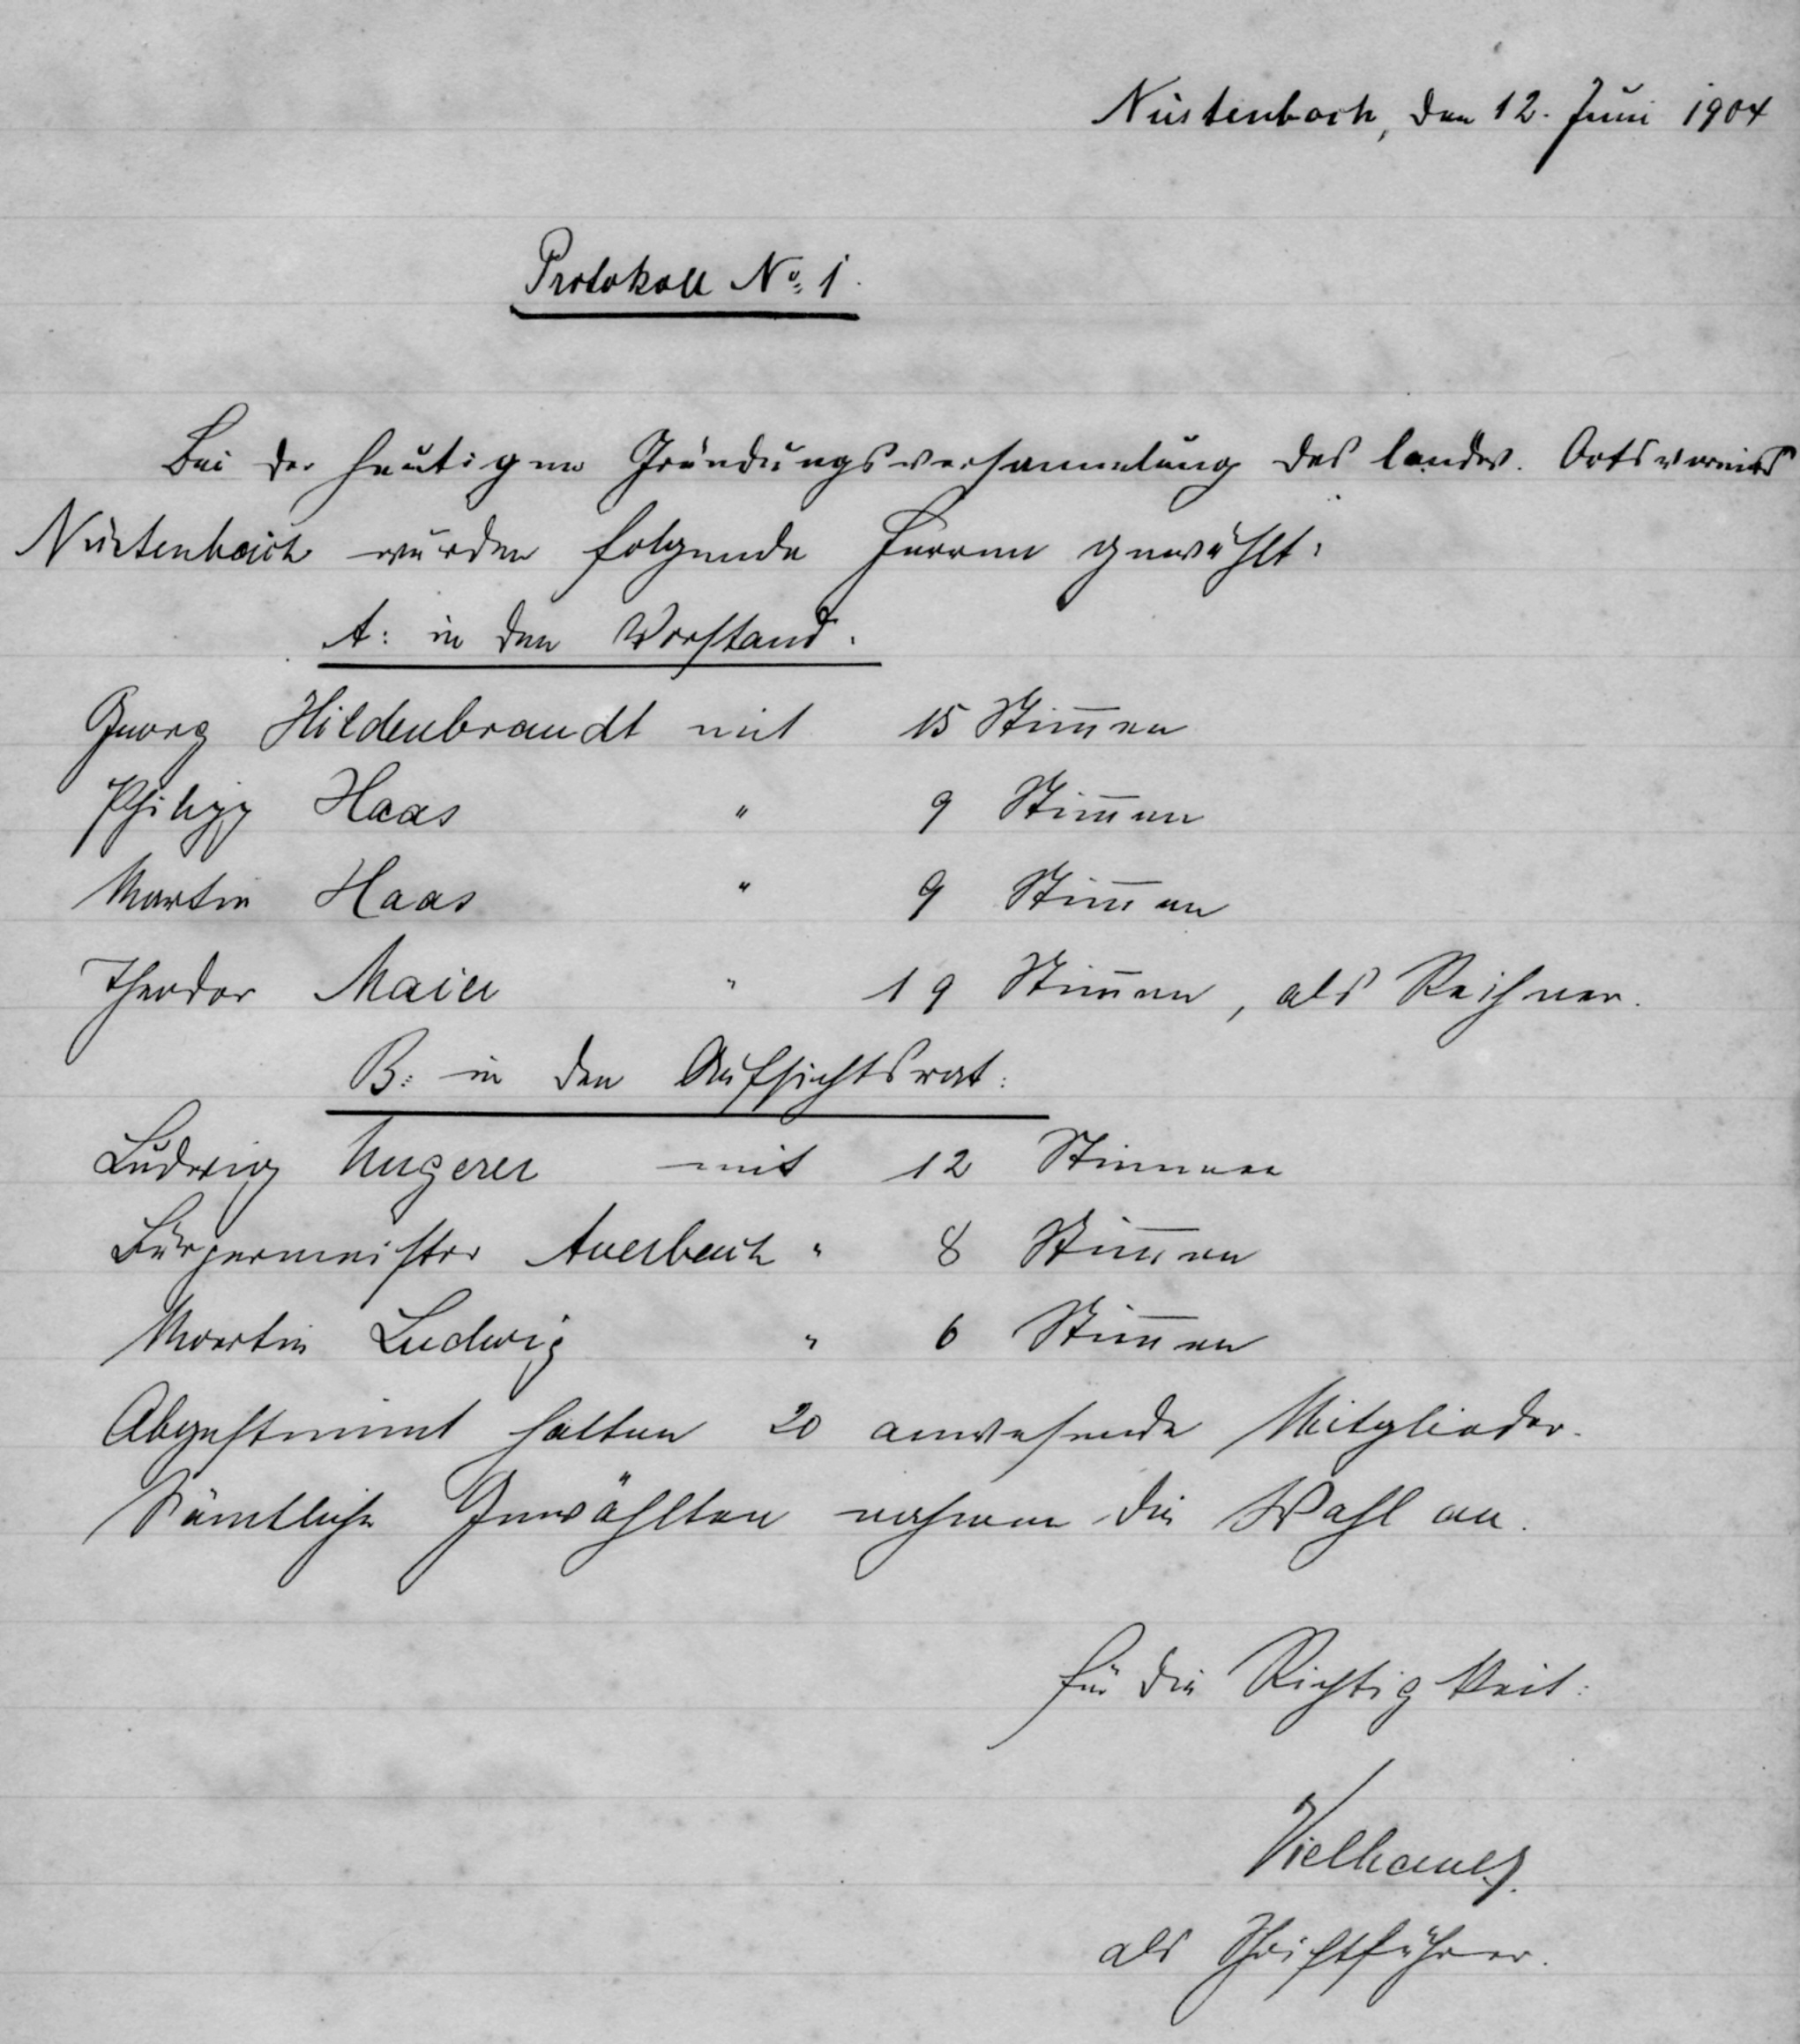 Nüstenbach, den 12. Juni 1904
Protokoll No. 1.
Bei der heutigen Gründungsversammlung des landw. Ortsvereins
Nüstenbach wurden folgende Herren gewählt:
A: in den Vorstand:
Georg Hildenbrandt mit 15 Stim̅en
Philipp Haas " 9 Stim̅en
Martin Haas " 9 Stim̅en
Theodor Maier " 19 Stim̅en, als Rechner.
B: in den Aufsichtsrat:
Ludwig mit 12 Stimmen
Bürgermeister Auerbach " 8 Stim̅en
Martin Ludwig " 6 Stim̅en
Abgestimmt hatten 20 anwesende Mitglieder.
Sämtliche Gewählten nahmen die Wahl an.
für die Richtigkeit:
Vielhauer.
als Schriftführer.